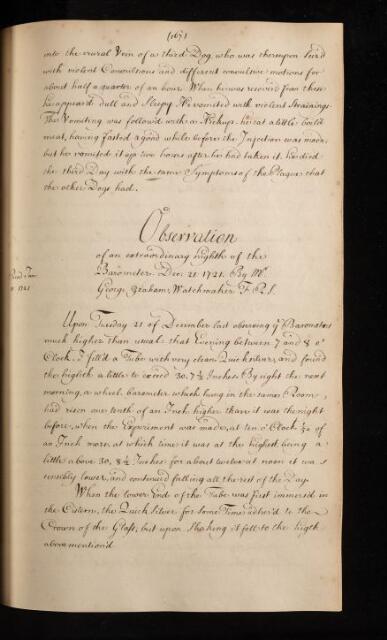 (167)
into the crural Vein of a third Dog, who was thereupon seiz'd
with violent Convulsions and different convulsive motions for
about half a quarter of an hour. When he was recover'd from these
he appear'd dull and Sleepy. He vomited with violent Strainings.
The Vomiting was follow'd with a Hickup. he eat a little boil'd
meat, having fasted a good while before the Injection was made,
but he vomited it up two hours after he had taken it. he died
the third Day with the same Symptoms of the Plague that
the other Dogs had.
Observation
of an extraordinary highth of the
Barometer. Dec. 21 1721. By Mr.
George Graham, Watchmaker F.R.S.
Read Jan.
1721
Upon Tuesday 21 of December last observing ye Barometer
much higher than usual that Evening between 7 and 8 o'
Clock. I fill'd a Tube with very clean Quicksilver, and found
the highth a little to exceed 30. 7½ Inches. By eight the next
morning, a wheel barometer which hung in the same Room,
had risen one tenth of an Inch higher than it was the night
before, when the Experiment was made, at ten o'Clock of
an Inch more, at which time it was at the highest being a
little above 30, 8½ Inches. for about twelve at noon it was
sensibly lower, and continued falling all the rest of the Day.
When the lower End of the Tube was first immers'd in
the Cistern, the Quick Silver for some Time adher'd to the
Crown of the Glass, but upon shaking it fell to the higth
abovemention'd